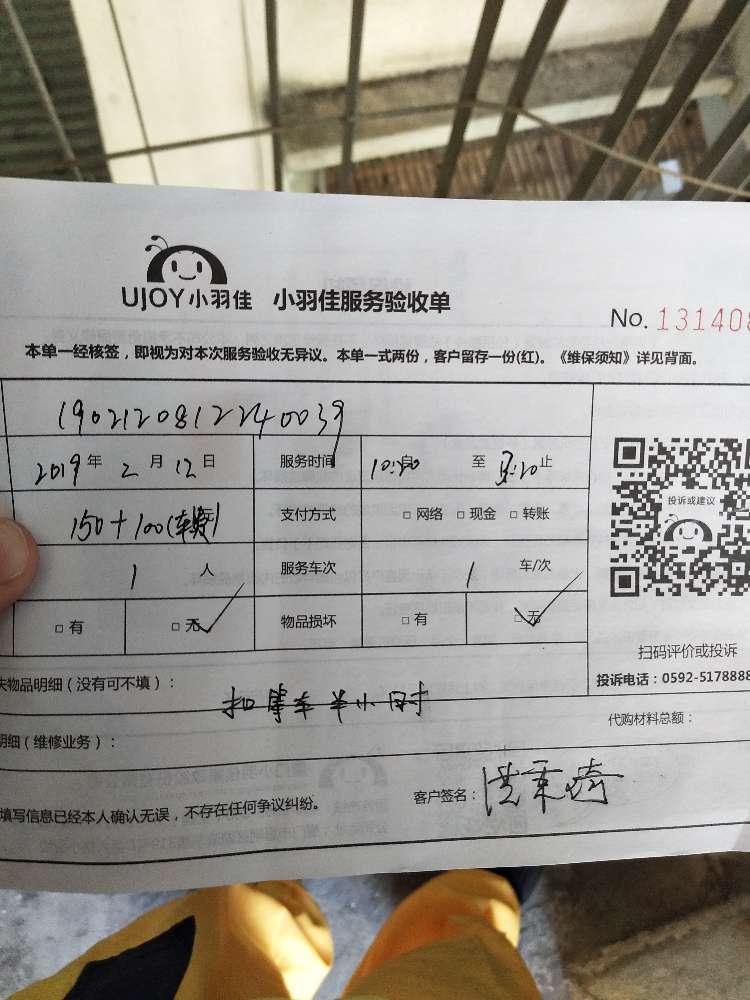 UJOY小羽佳 小羽佳服务验收单
No. 131408
本单一经核签，即视为对本次服务验收无异议。本单一式两份，客户留存一份(红)。《维保须知》详见背面。
1902120812240039
2019年2月12日 服务时间 10:20启 至 :20止
投诉或建议
150+100(车费) 支付方式 □网络 □现金 □转账
1 人 服务车次 1 车/次
□有 □无 物品损坏 □有 □无
扫码评价或投诉
投诉电话：0592-5178888
失物品明细（没有可不填）： 扣等车半小时
代购材料总额：
明细（维修业务）：
客户签名：
填写信息已经本人确认无误，不存在任何争议纠纷。